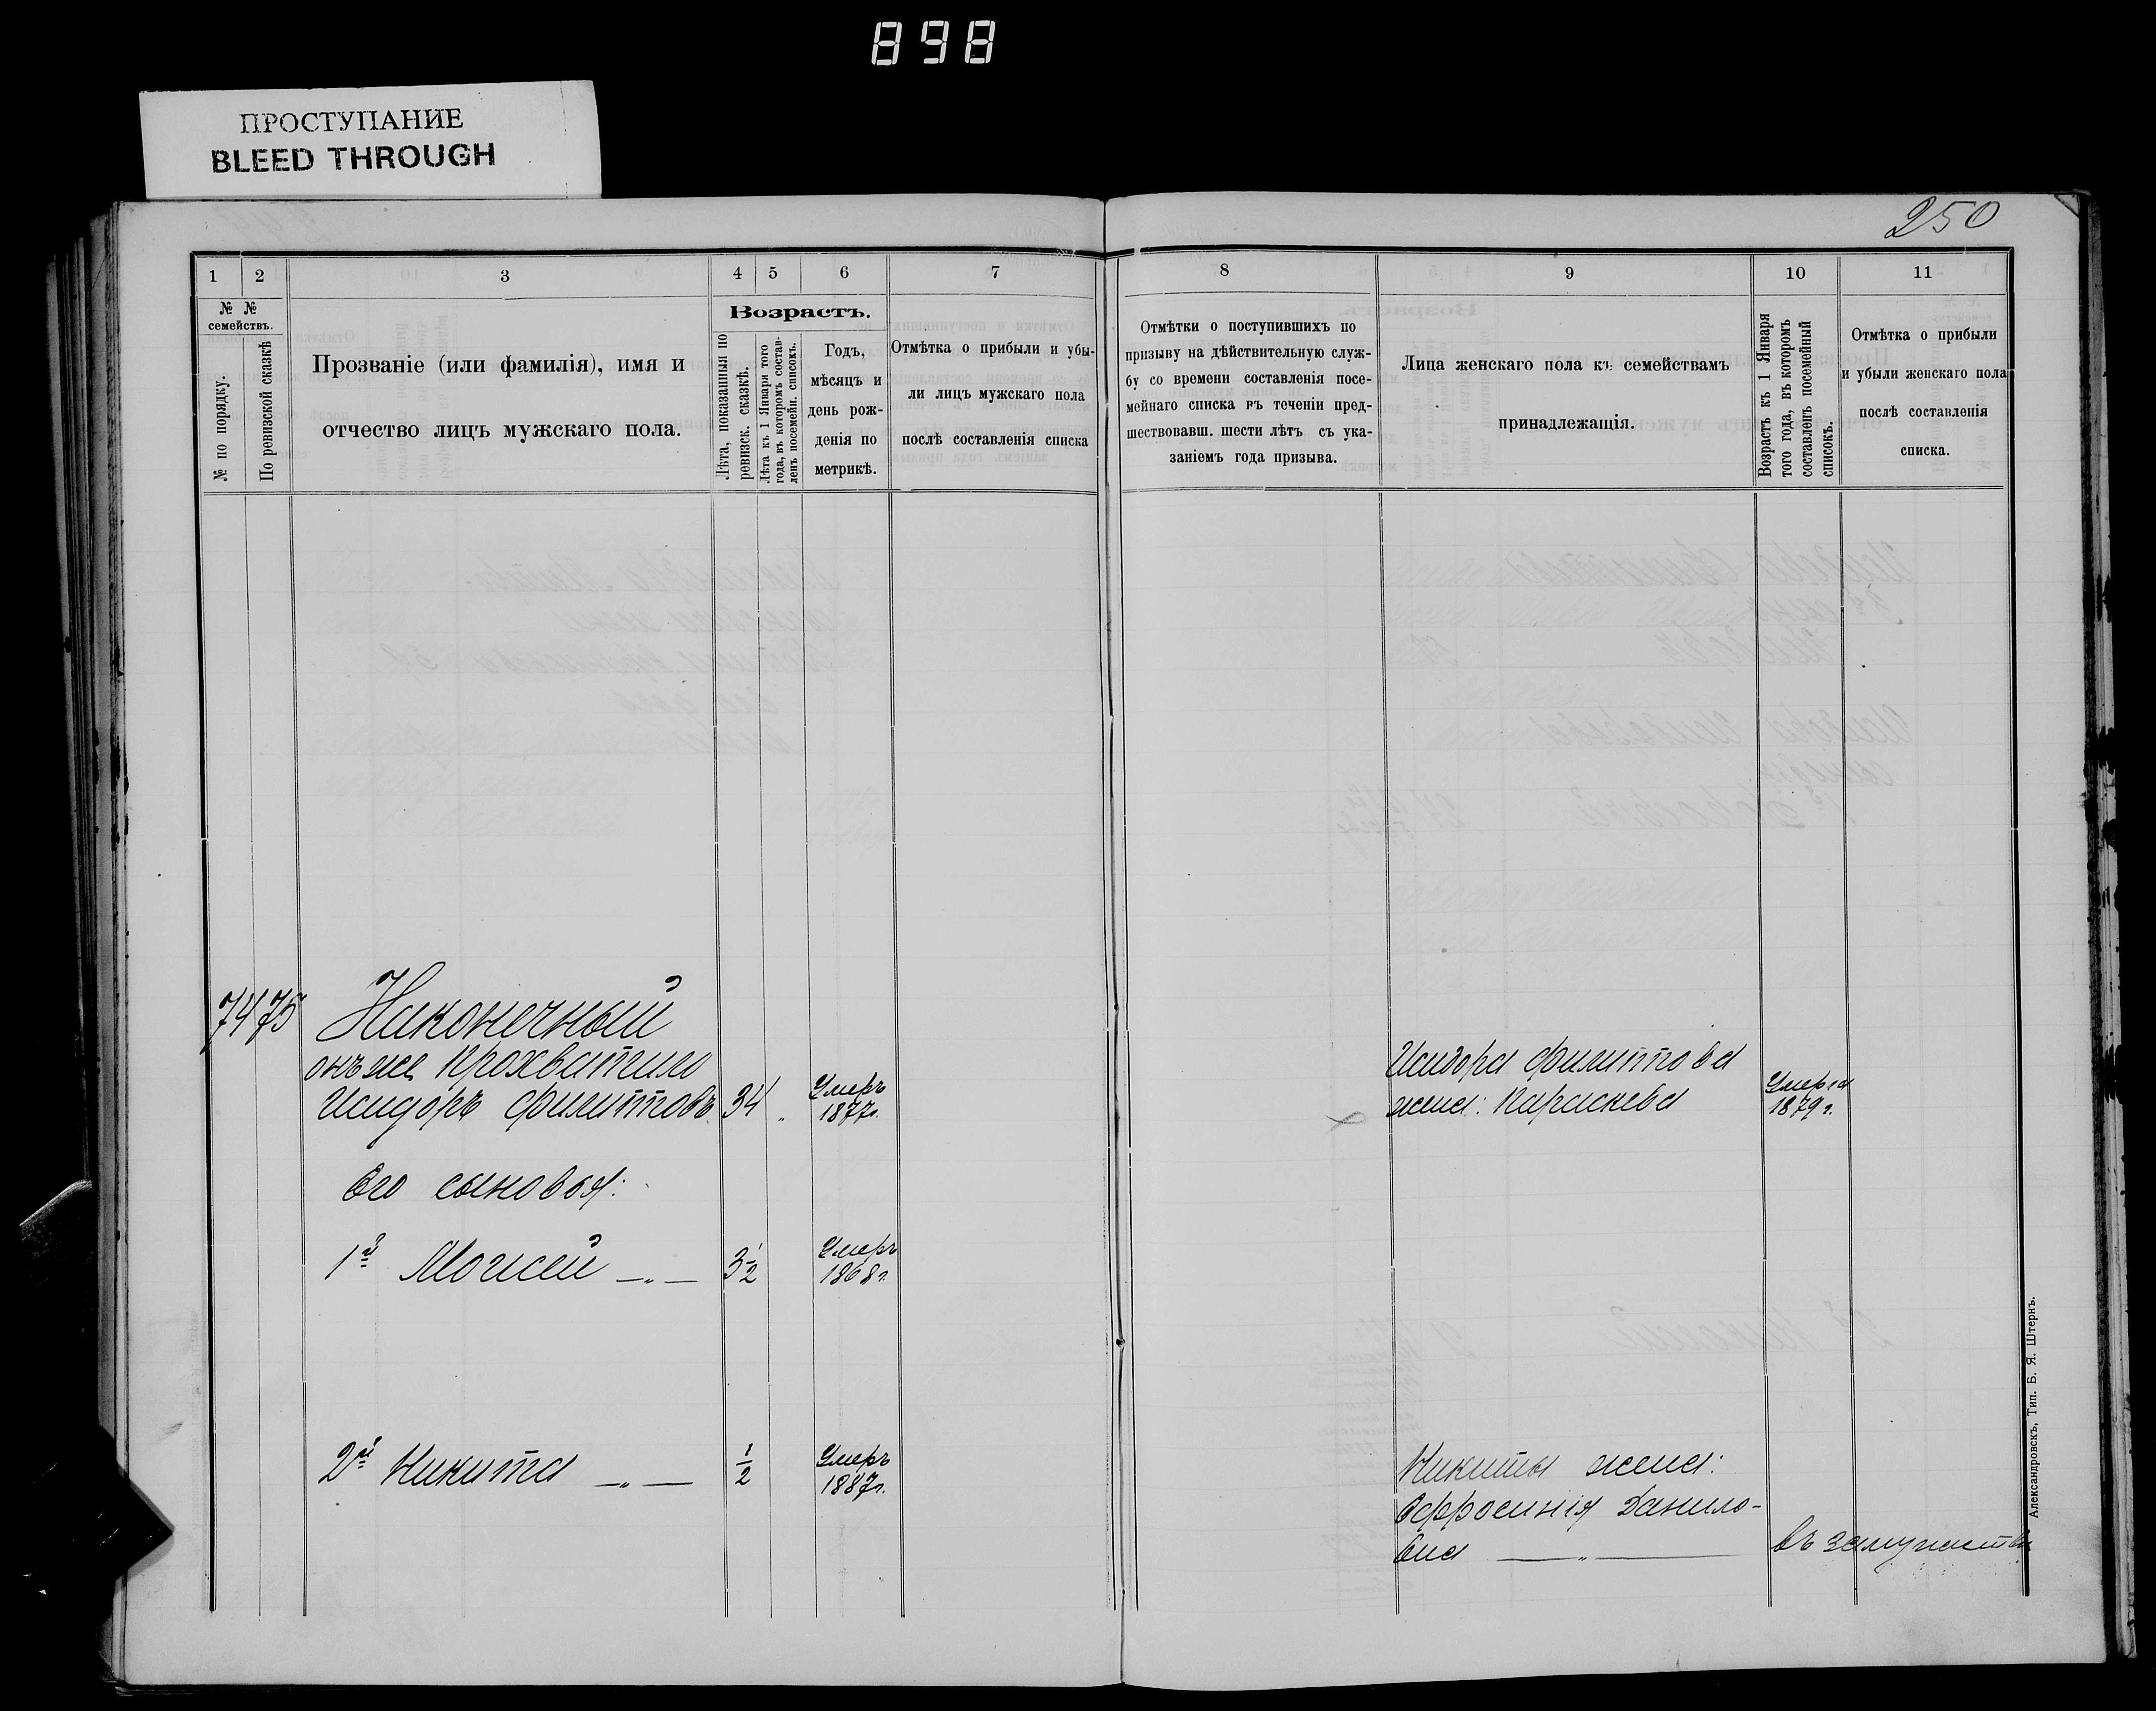 898
ПРОСТУПАНИЕ
BLEED THROUGH
250
1 2 3 4 5 6 7 8 9 10 11
№ № семействъ.
№ по порядку.
По ревизской сказкѣ
Прозваніе (или фамилія), имя и
отчество лицъ мужскаго пола.
Возрастъ.
Лѣта, показанныя по
ревизск. сказкѣ.
Лѣта къ 1 Января того
года, въ которомъ состав-
ленъ посемейн. списокъ.
Годъ,
мѣсяцъ и
день рож-
денія по
метрикѣ.
Отмѣтка о прибыли и убы-
ли лицъ мужскаго пола
послѣ составленія списка
Отмѣтки о поступившихъ по
призыву на дѣйствительную служ-
бу со времени составленія посе-
мейнаго списка въ теченіи пред-
шествовавш. шести лѣтъ съ ука-
заніемъ года призыва.
Лица женскаго пола къ семействамъ
принадлежащія.
Возрастъ къ 1 Января
того года, въ которомъ
составленъ посемейный
списокъ.
Отмѣтка о прибыли
и убыли женскаго пола
послѣ составленія
списка.
74 75 Наконечный
онъ же Прохватило
Исидоръ Филипповъ 34 „ Умеръ
1877г.
Исидора Филиппова
жена: Параскева Умерла
1879 г.
Его сыновья:
1й Моисей —„— 3 1/2 Умеръ
1868г.
2й Никита —„— 1/2 Умеръ
1887г.
Никиты жена:
Ефросинія Данило-
вна —„— въ замужествѣ
Александровскъ, Тип. Б. Я. Штернъ.